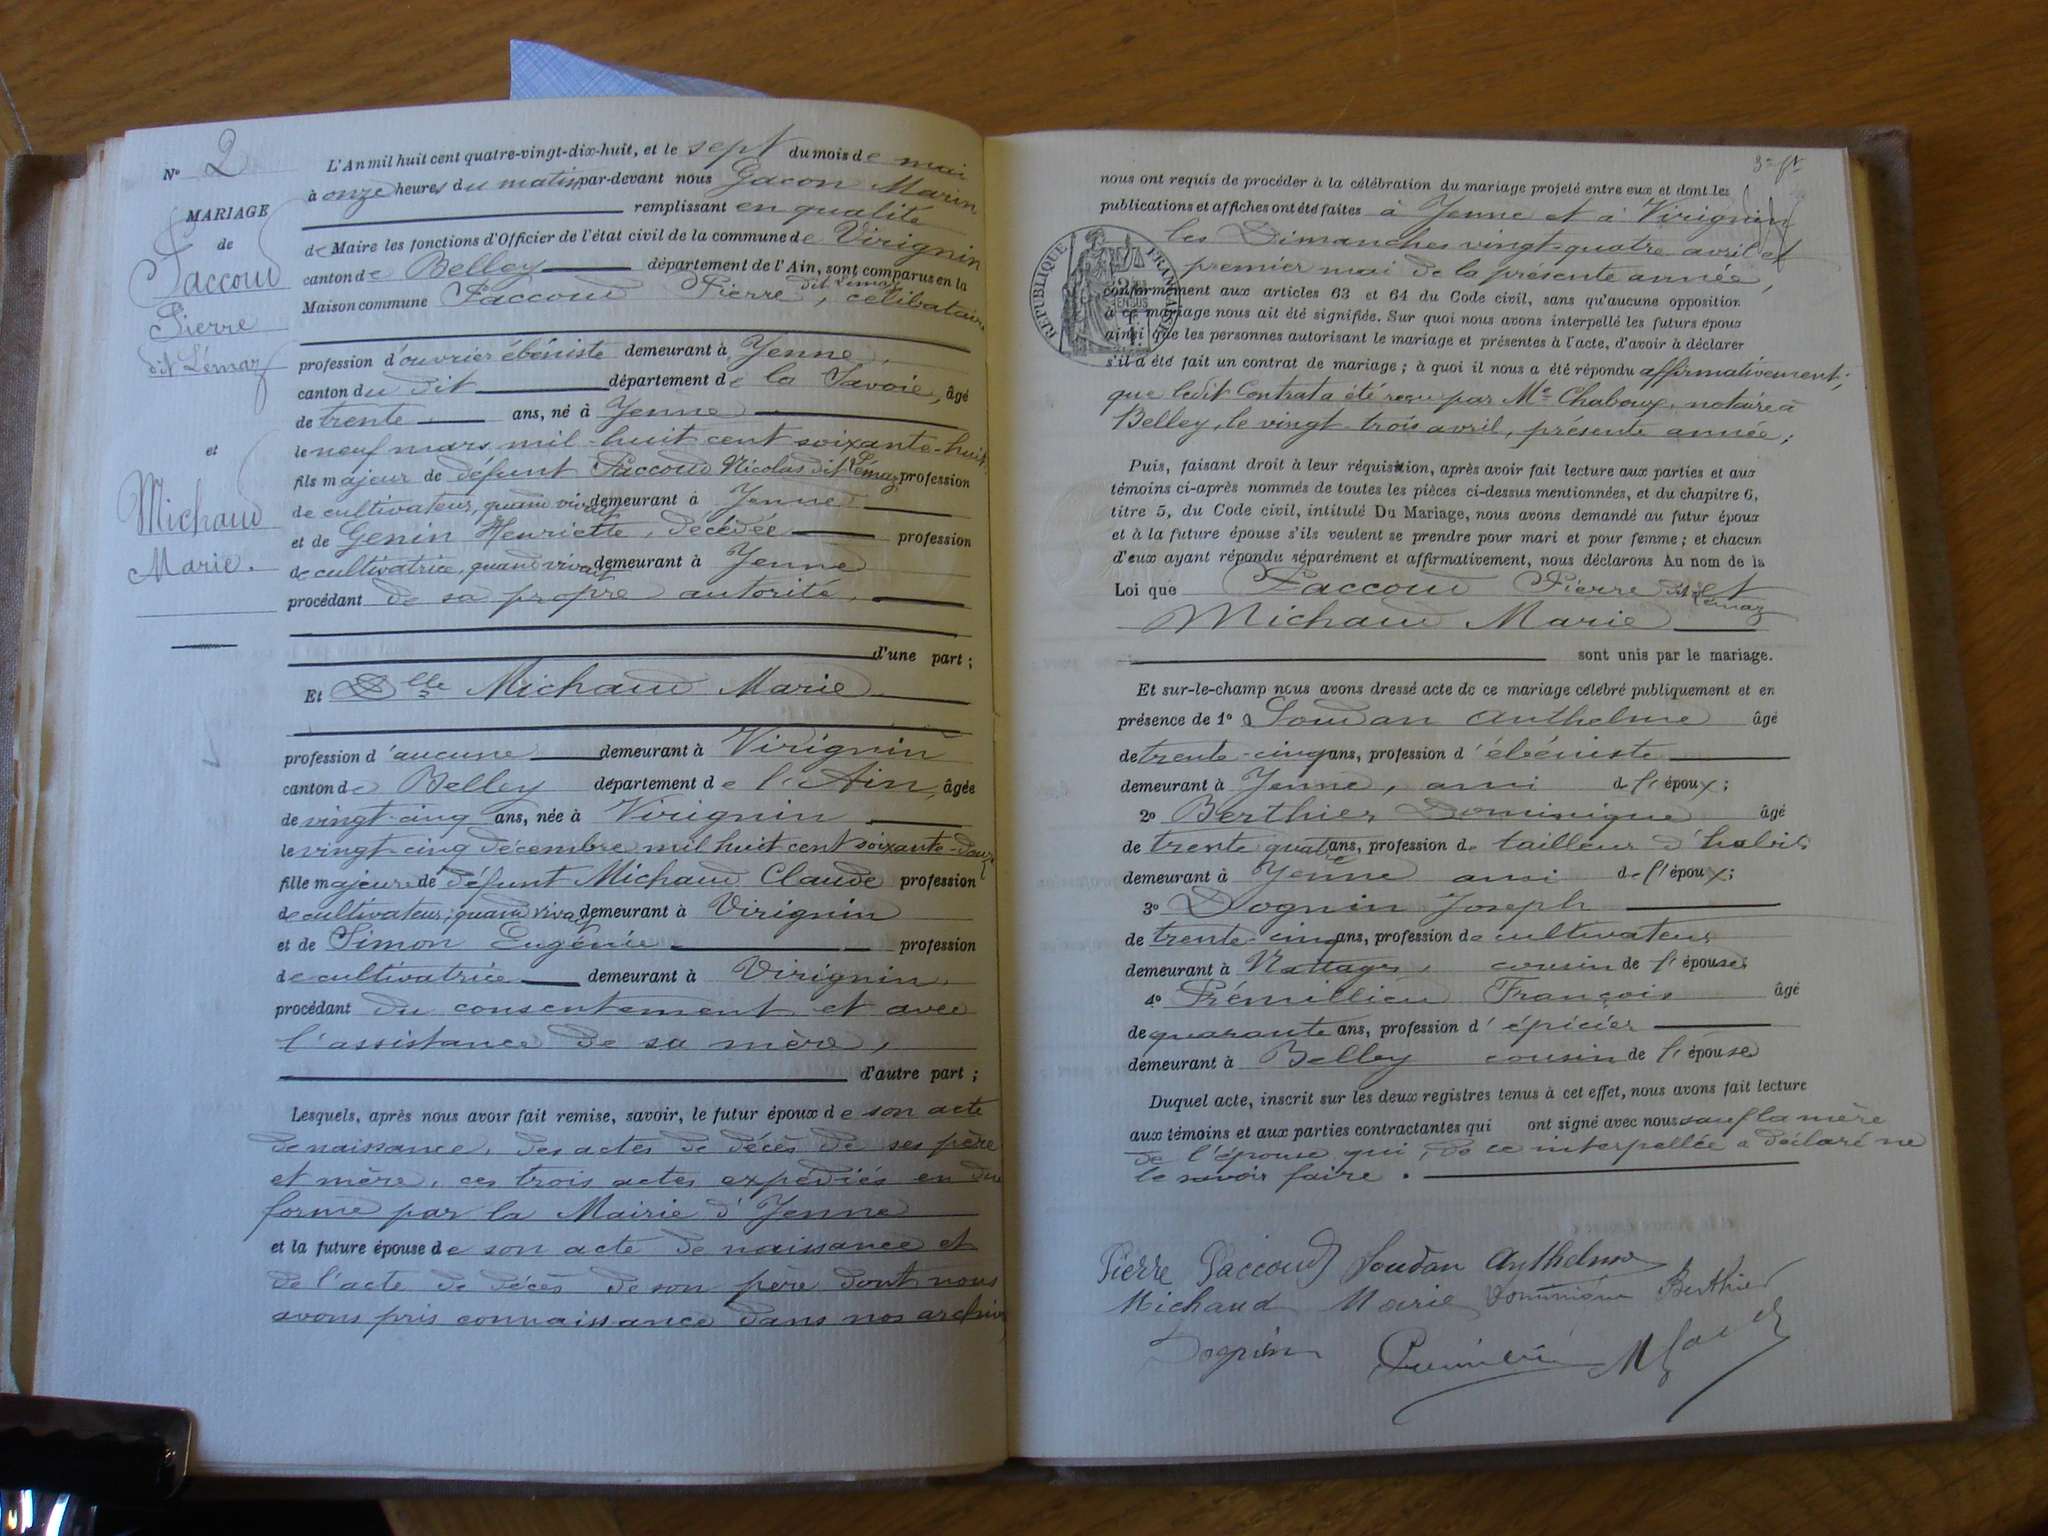 N° 2
MARIAGE
de
Paccoud
Pierre
dit Lémaz
et
Michaud
Marie.
L'An mil huit cent quatre-vingt-dix-huit, et le sept du mois de mai
à onze heures du matin par-devant nous Gacon Marin
remplissant en qualité
de Maire les fonctions d'Officier de l'état civil de la commune de Virignin
canton de Belley département de l'Ain, sont comparus en la
Maison commune Paccoud Pierre dit Lémaz, célibataire
profession d'ouvrier ébéniste demeurant à Yenne,
canton du dit département de la Savoie, âgé
de trente ans, né à Yenne
le neuf mars mil-huit cent soixante-huit
fils majeur de défunt Paccoud Nicolas dit Lémaz profession
de cultivateur, quand vivait demeurant à Yenne
et de Genin Henriette, décédée profession
de cultivatrice, quand vivait demeurant à Yenne
procédant de sa propre autorité,
d'une part ;
Et Dlle Michaud Marie
profession d'aucune demeurant à Virignin
canton de Belley département de l'Ain, âgée
de vingt-cinq ans, née à Virignin
le vingt-cinq décembre mil huit cent soixante-douze
fille majeure de défunt Michaud Claude profession
de cultivateur, quand vivait demeurant à Virignin
et de Simon Eugénie profession
de cultivatrice demeurant à Virignin,
procédant du consentement et avec
l'assistance de sa mère,
d'autre part ;
Lesquels, après nous avoir fait remise, savoir, le futur époux de son acte
de naissance, des actes de décès de ses père
et mère, ces trois actes expédiés en due
forme par la Mairie d'Yenne
et la future épouse de son acte de naissance et
de l'acte de décès de son père dont nous
avons pris connaissance dans nos archives
nous ont requis de procéder à la célébration du mariage projeté entre eux et dont les
publications et affiches ont été faites à Yenne et à Virignin
les Dimanches vingt-quatre avril et
premier mai de la présente année,
RÉPUBLIQUE FRANÇAISE
conformément aux articles 63 et 64 du Code civil, sans qu'aucune opposition
à ce mariage nous ait été signifiée. Sur quoi nous avons interpellé les futurs époux
ainsi que les personnes autorisant le mariage et présentes à l'acte, d'avoir à déclarer
s'il a été fait un contrat de mariage ; à quoi il nous a été répondu affirmativement ;
que ledit Contrat a été reçu par Me Chaboux, notaire à
Belley, le vingt-trois avril, présente année ;
Puis, faisant droit à leur réquisition, après avoir fait lecture aux parties et aux
témoins ci-après nommés de toutes les pièces ci-dessus mentionnées, et du chapitre 6,
titre 5, du Code civil, intitulé Du Mariage, nous avons demandé au futur époux
et à la future épouse s'ils veulent se prendre pour mari et pour femme ; et chacun
d'eux ayant répondu séparément et affirmativement, nous déclarons Au nom de la
Loi que Paccoud Pierre dit Lémaz et
Michaud Marie
sont unis par le mariage.
Et sur-le-champ nous avons dressé acte de ce mariage célébré publiquement et en
présence de 1° Soudan Anthelme âgé
de trente-cinq ans, profession d'ébéniste
demeurant à Yenne, ami de l'époux ;
2° Berthier Dominique âgé
de trente quatre ans, profession de tailleur d'habits
demeurant à Yenne ami de l'époux ;
3° Dognin Joseph
de trente-cinq ans, profession de cultivateur
demeurant à Nattages, cousin de l'épouse
4° Prémillieu François âgé
de quarante ans, profession d'épicier
demeurant à Belley cousin de l'épouse
Duquel acte, inscrit sur les deux registres tenus à cet effet, nous avons fait lecture
aux témoins et aux parties contractantes qui ont signé avec nous sauf la mère
de l'épouse qui, de ce interpellée a déclaré ne
le savoir faire.
Pierre Paccoud Soudan Anthelme
Michaud Marie Dominique Berthier
Dognin